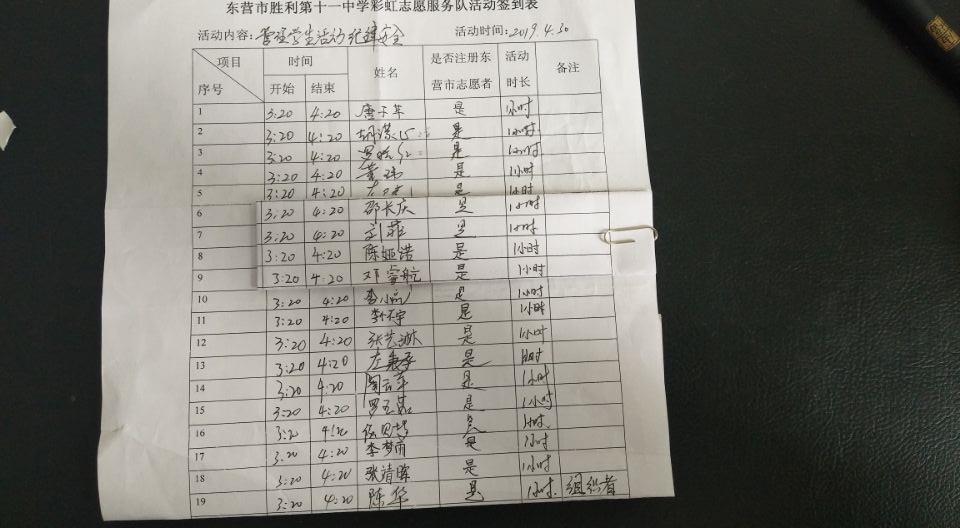 东营市胜利第十一中学彩虹志愿服务队活动签到表
活动内容：管理学生活动纪律安全 活动时间：2019.4.30
项目 序号 时间 姓名 是否注册东营市志愿者 活动时长 备注
开始 结束
1 3:20 4:20 唐子军 是 1小时
2 3:20 4:20 是 1小时
3 3:20 4:20 是 1小时
4 3:20 4:20 董玮 是 1小时
5 3:20 4:20 是 1小时
6 3:20 4:20 邵长庆 是 1小时
7 3:20 4:20 是 1小时
8 3:20 4:20 陈娅浩 是 1小时
9 3:20 4:20 邓睿航 是 1小时
10 3:20 4:20 是 1小时
11 3:20 4:20 是 1小时
12 3:20 4:20 张艺淋 是 1小时
13 3:20 4:20 左秉承 是 1小时
14 3:20 4:20 是 1小时
15 3:20 4:20 是 1小时
16 3:20 4:20 是 1小时
17 3:20 4:20 李梦雨 是 1小时
18 3:20 4:20 张清晖 是 1小时
19 3:20 4:20 陈华 是 1小时 组织者